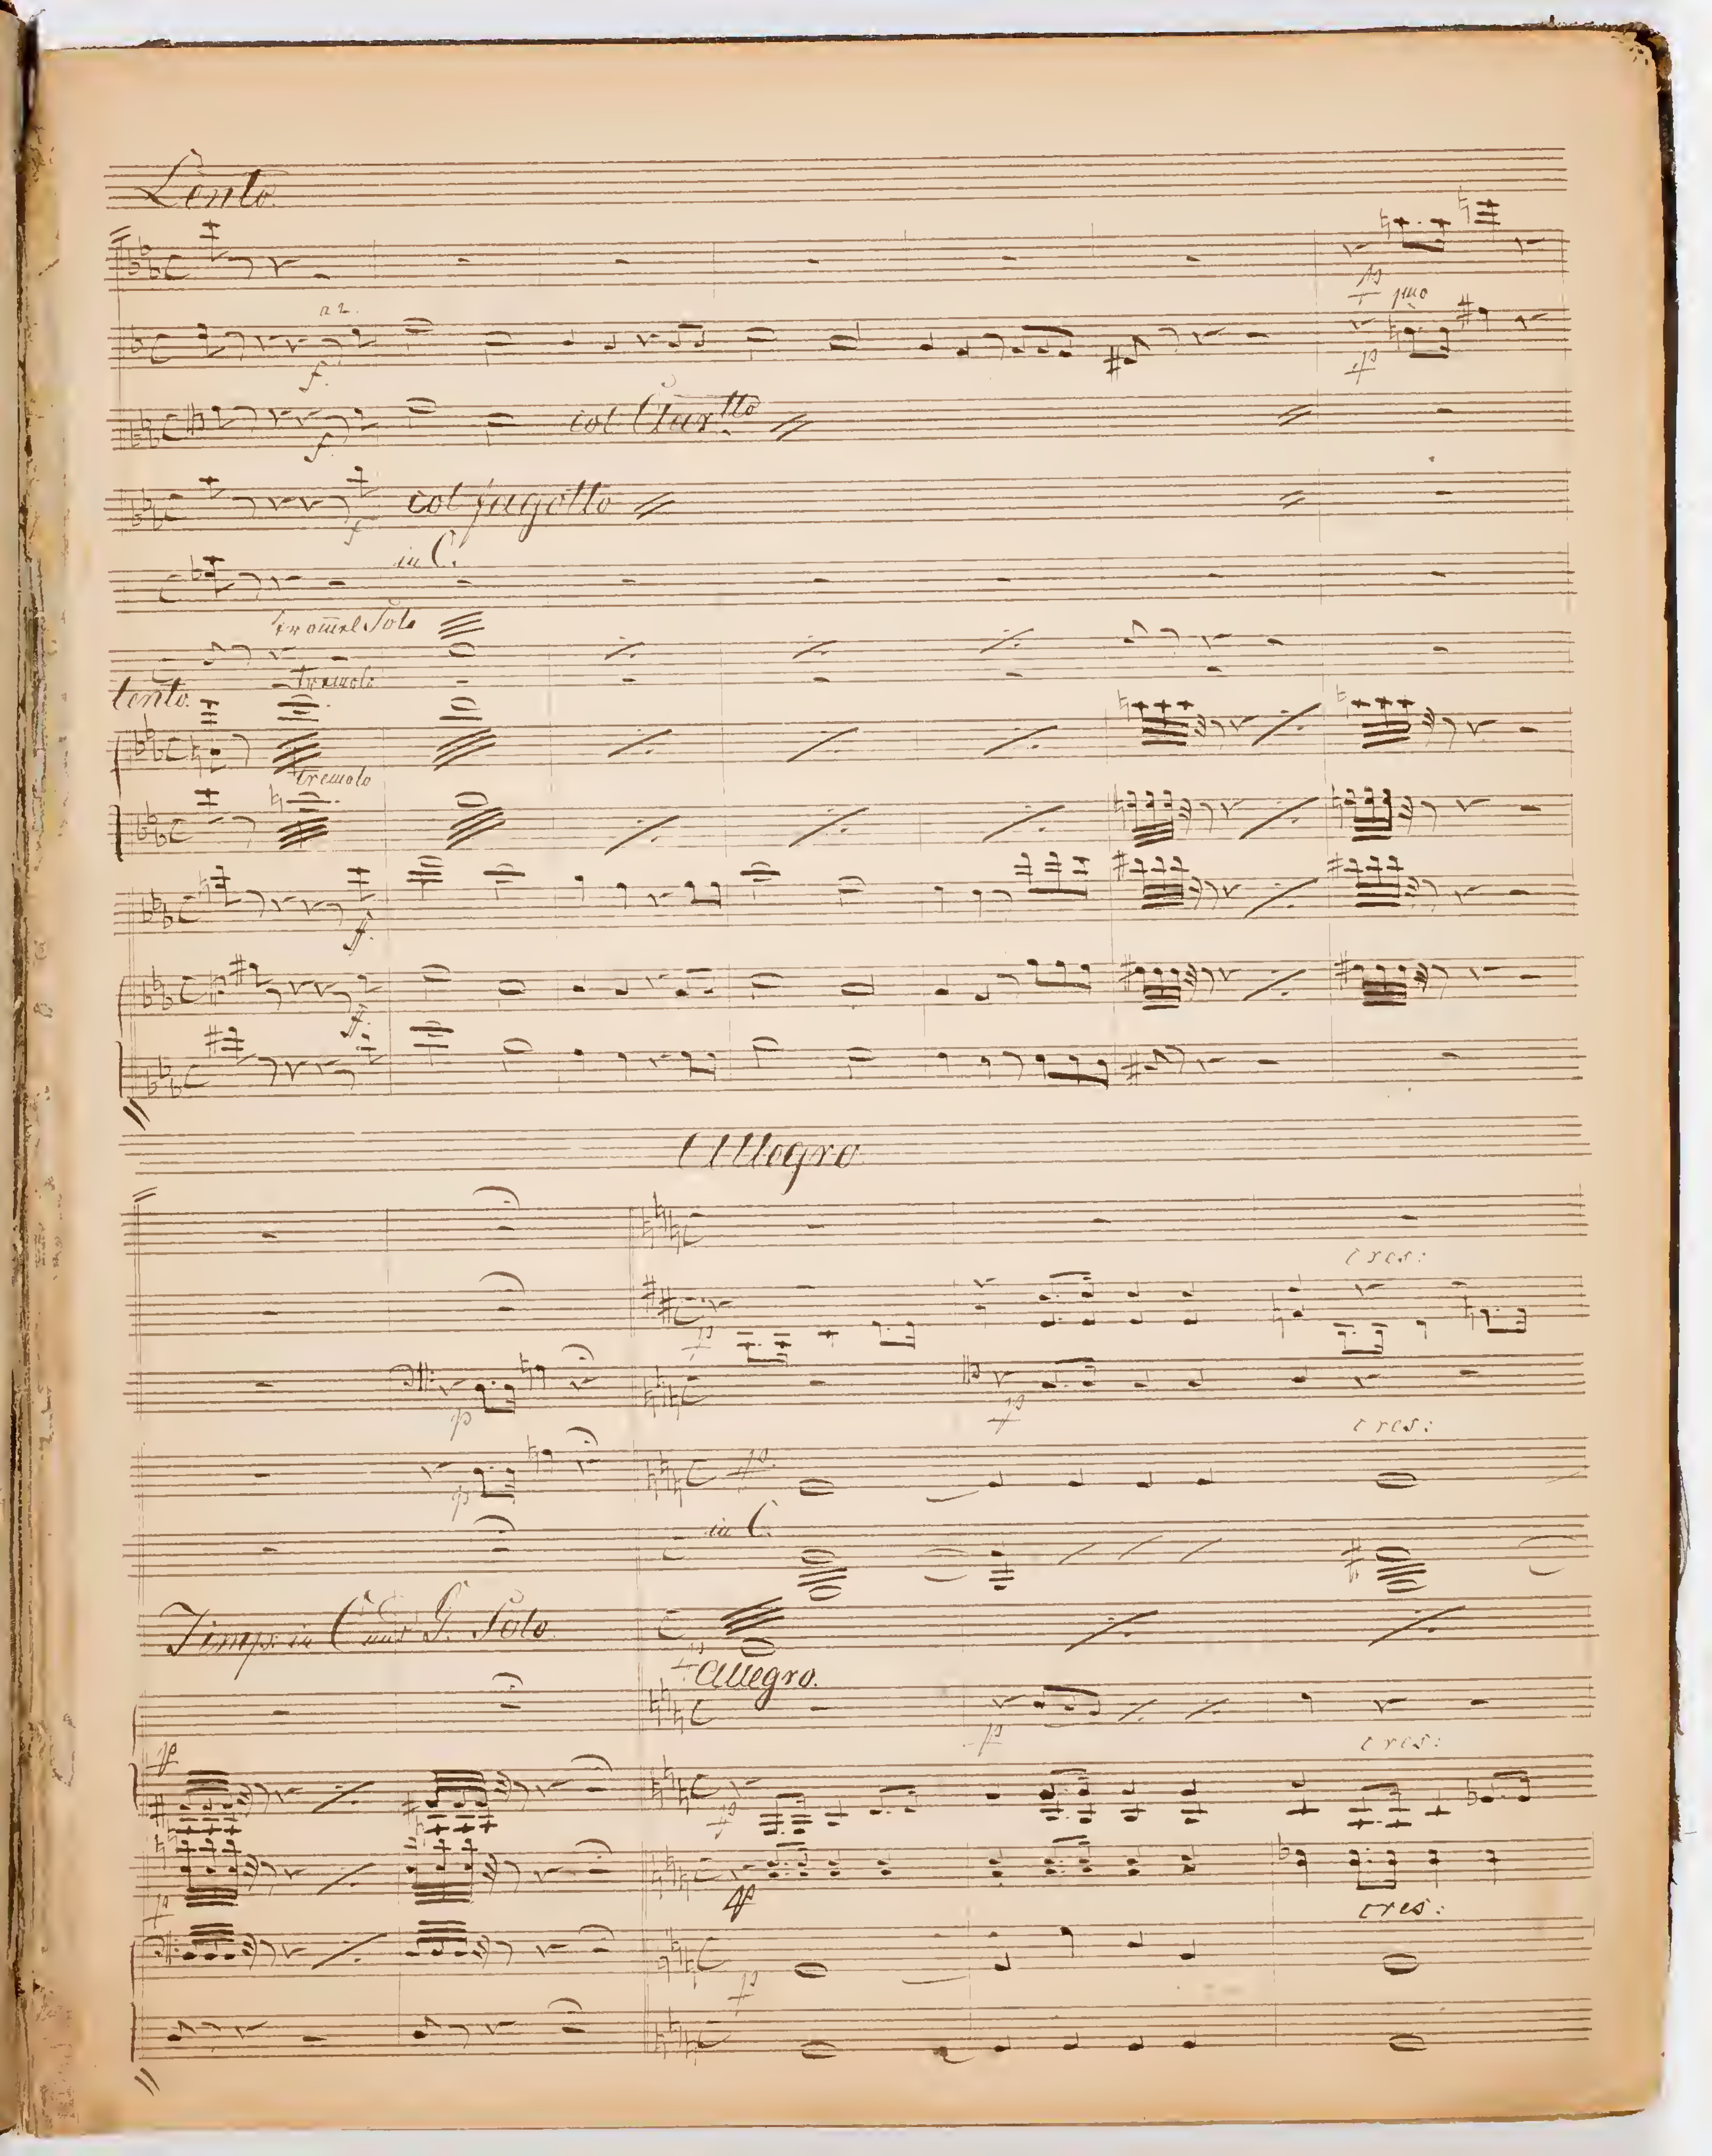 Lento
a 2.
p
1mo
f.
p
col Clartto
f.
col fagotto
f
in C.
Tromel Solo
tremolo
Lento.
tremolo
f.
f.
Allegro
cres:
p
p
p
cres:
p
p
in C.
Timp: in C und G. Solo
p
Allegro.
p
p
cres:
p
p
p
cres:
p